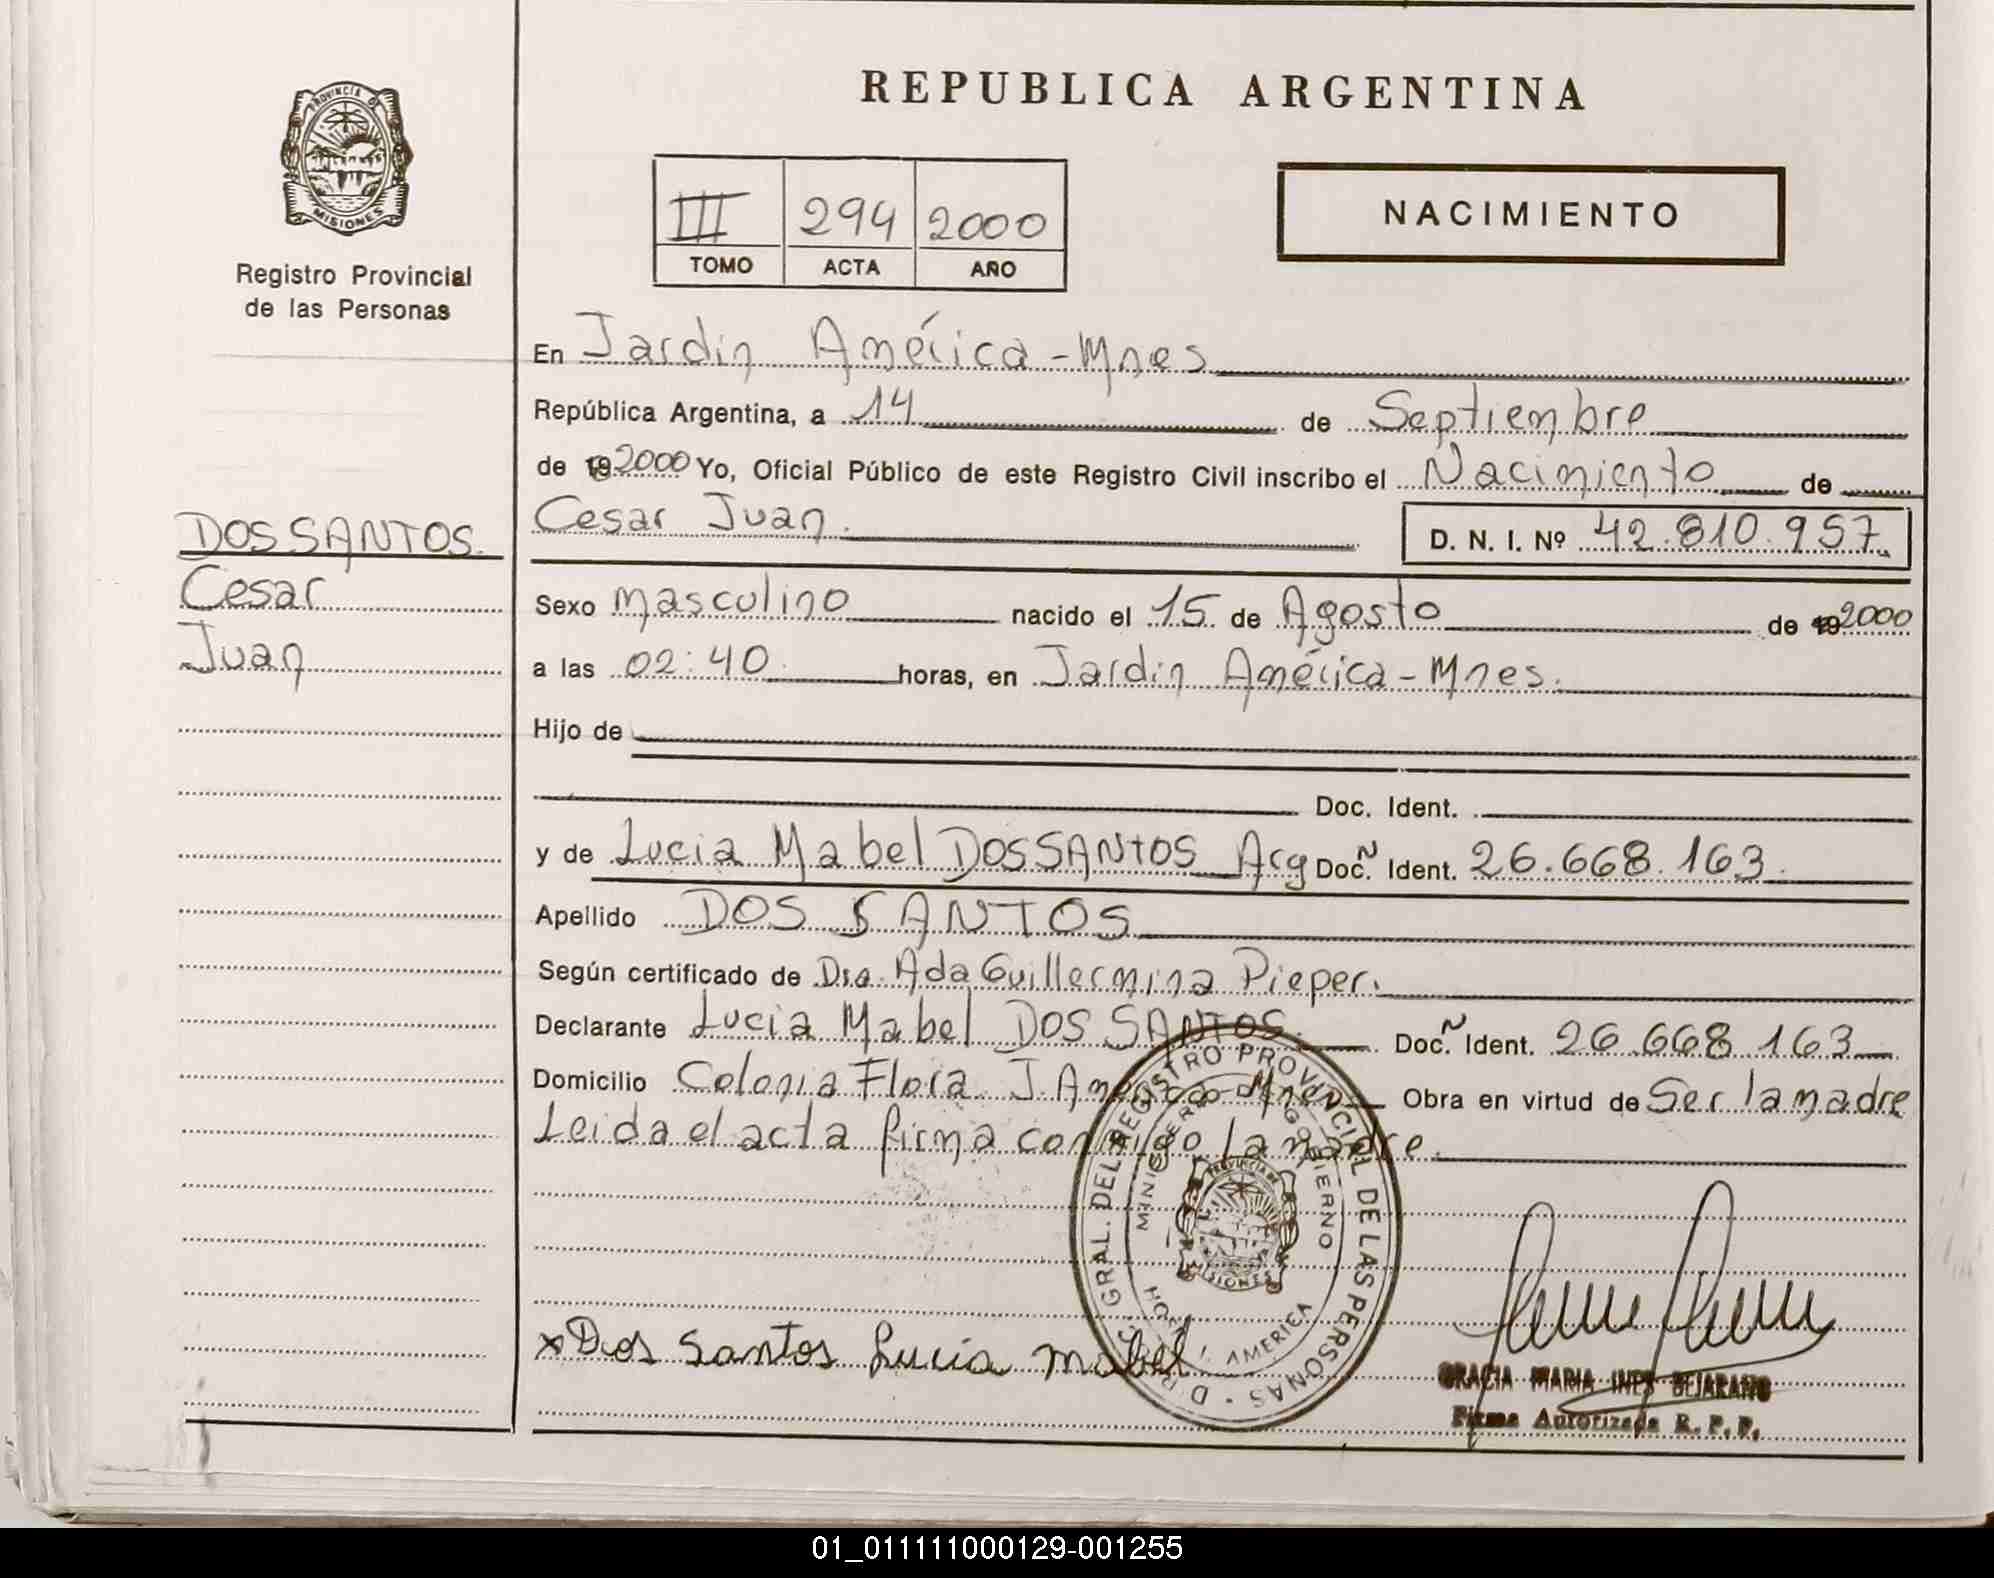 REPUBLICA ARGENTINA
PROVINCIA DE
MISIONES
Registro Provincial
de las Personas
III 294 2000
TOMO ACTA AÑO
NACIMIENTO
En Jardin América - Mnes
República Argentina, a 14 de Septiembre
de 19 2000 Yo, Oficial Público de este Registro Civil inscribo el Nacimiento de
Cesar Juan.
D. N. I. Nº 42.810.957
DOS SANTOS.
Cesar
Juan
Sexo Masculino nacido el 15 de Agosto de 19 2000
a las 02:40 horas, en Jardin América - Mnes.
Hijo de
Doc. Ident.
y de Lucia Mabel DOS SANTOS Arg Doc. Ident. 26.668.163
Apellido DOS SANTOS
Según certificado de Dra. Ada Guillermina Pieper.
Declarante Lucia Mabel DOS SANTOS. Doc. Ident. 26.668.163
Domicilio Colonia Flora J. América - Mnes Obra en virtud de Ser la madre
Leida el acta firma conmigo la madre.
DIR. GRAL. DEL REGISTRO PROVINCIAL DE LAS PERSONAS
MINISTERIO DE GOBIERNO
PROVINCIA DE
MISIONES
J. AMERICA
x Dos Santos Lucia Mabel
GRACIA MARIA INES BEJARANO
Firma Autorizada R. P. P.
01_011111000129-001255